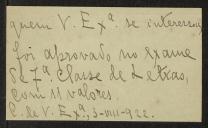 quem V. Ex.ª se interessou
foi aprovado no exame
de 7.ª Classe de Letras,
com 11 valores.
C. de V. Ex.ª, 3-VIII-922.